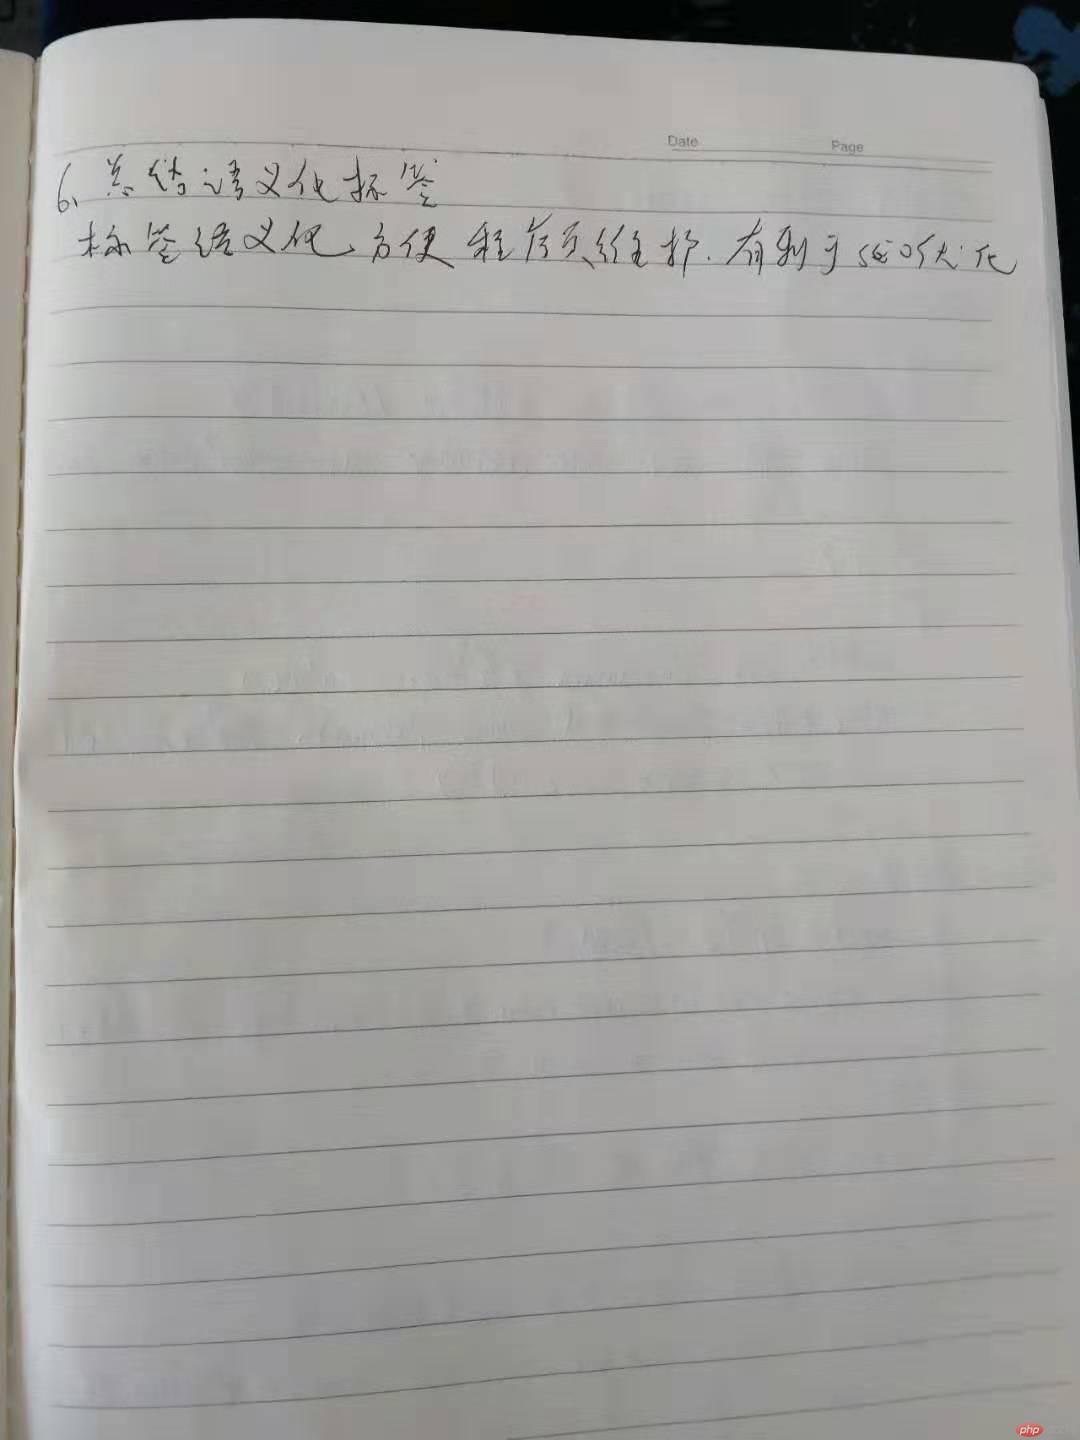 Date Page
6、总结语义化标签
标签语义化,方便程序员维护.有利于seo优化
php